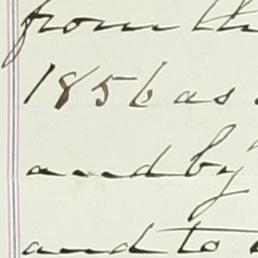 from th
1856 as
and by
and to